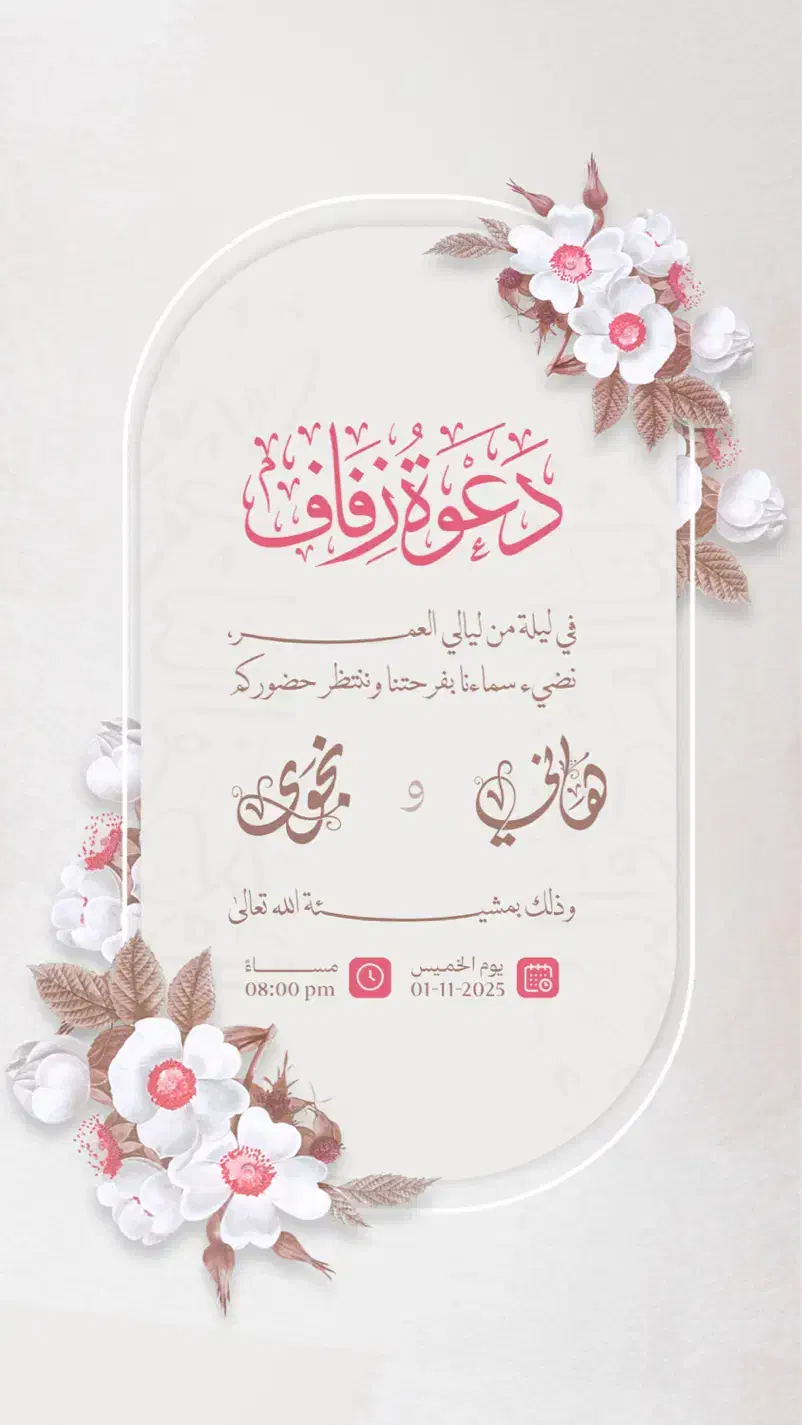 دَعْوَةُ زِفَاف
في ليلة من ليالي العمـــر،
نضيء سماءنا بفرحتنا وننتظر حضوركم
هَاني و نجوَى
وذلك بمشيـــئة الله تعالى
يوم الخميس مســـاءً
01-11-2025 08:00 pm